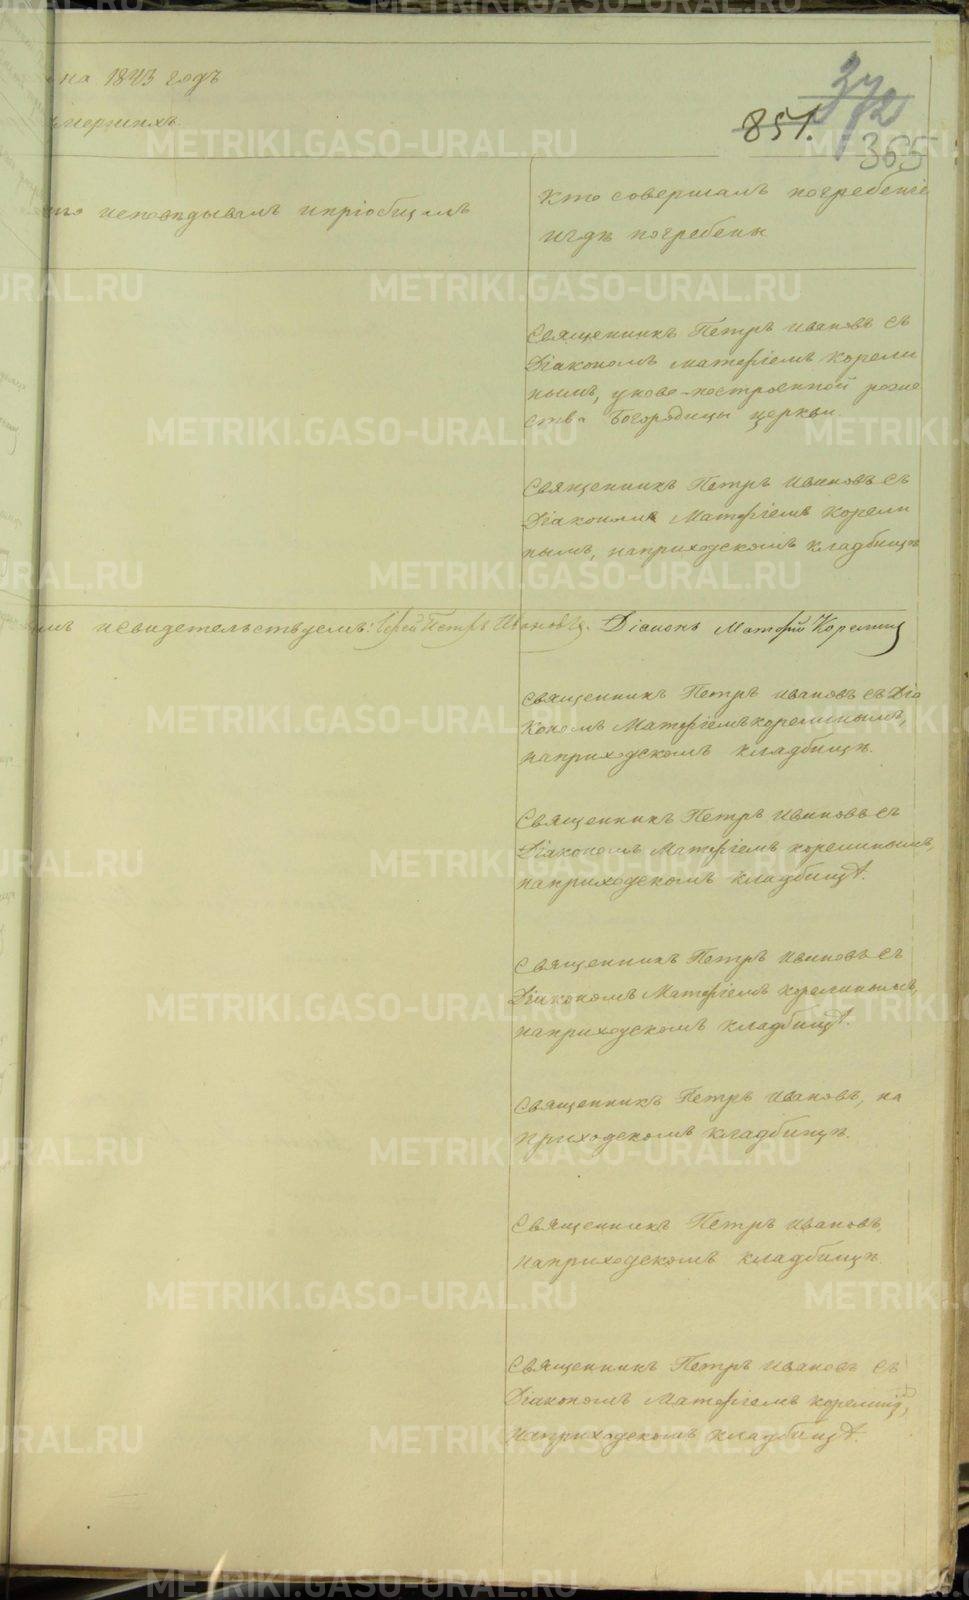 на 1843 годъ
умершихъ.
851.
372
365
кто исповѣдывалъ и пріобщалъ
Кто совершалъ погребеніе
и гдѣ погребены
Священникъ Петръ Ивановъ съ
Діакономъ Матфіемъ Корели
нымъ, у ново-построенной рожде
ства Богородицы церкви.
Священникъ Петръ Ивановъ съ
Діакономъ Матфіемъ Корели
нымъ, на приходскомъ кладбищѣ
и свидетельствуемъ: Іерей Петръ Ивановъ. Діаконъ Матфій Корелинъ
Священникъ Петръ Ивановъ съ Діа
кономъ Матфіемъ Корелинымъ,
на приходскомъ кладбищѣ.
Священникъ Петръ Ивановъ съ
Діакономъ Матфіемъ Корелинымъ,
на приходскомъ кладбищѣ.
Священникъ Петръ Ивановъ съ
Діакономъ Матфіемъ Корелинымъ,
на приходскомъ кладбищѣ.
Священникъ Петръ Ивановъ, на
приходскомъ кладбищѣ.
Священникъ Петръ Ивановъ,
на приходскомъ кладбищѣ.
Священникъ Петръ Ивановъ съ
Діакономъ Матфіемъ
на приходскомъ кладбищѣ.
METRIKI.GASO-URAL.RU